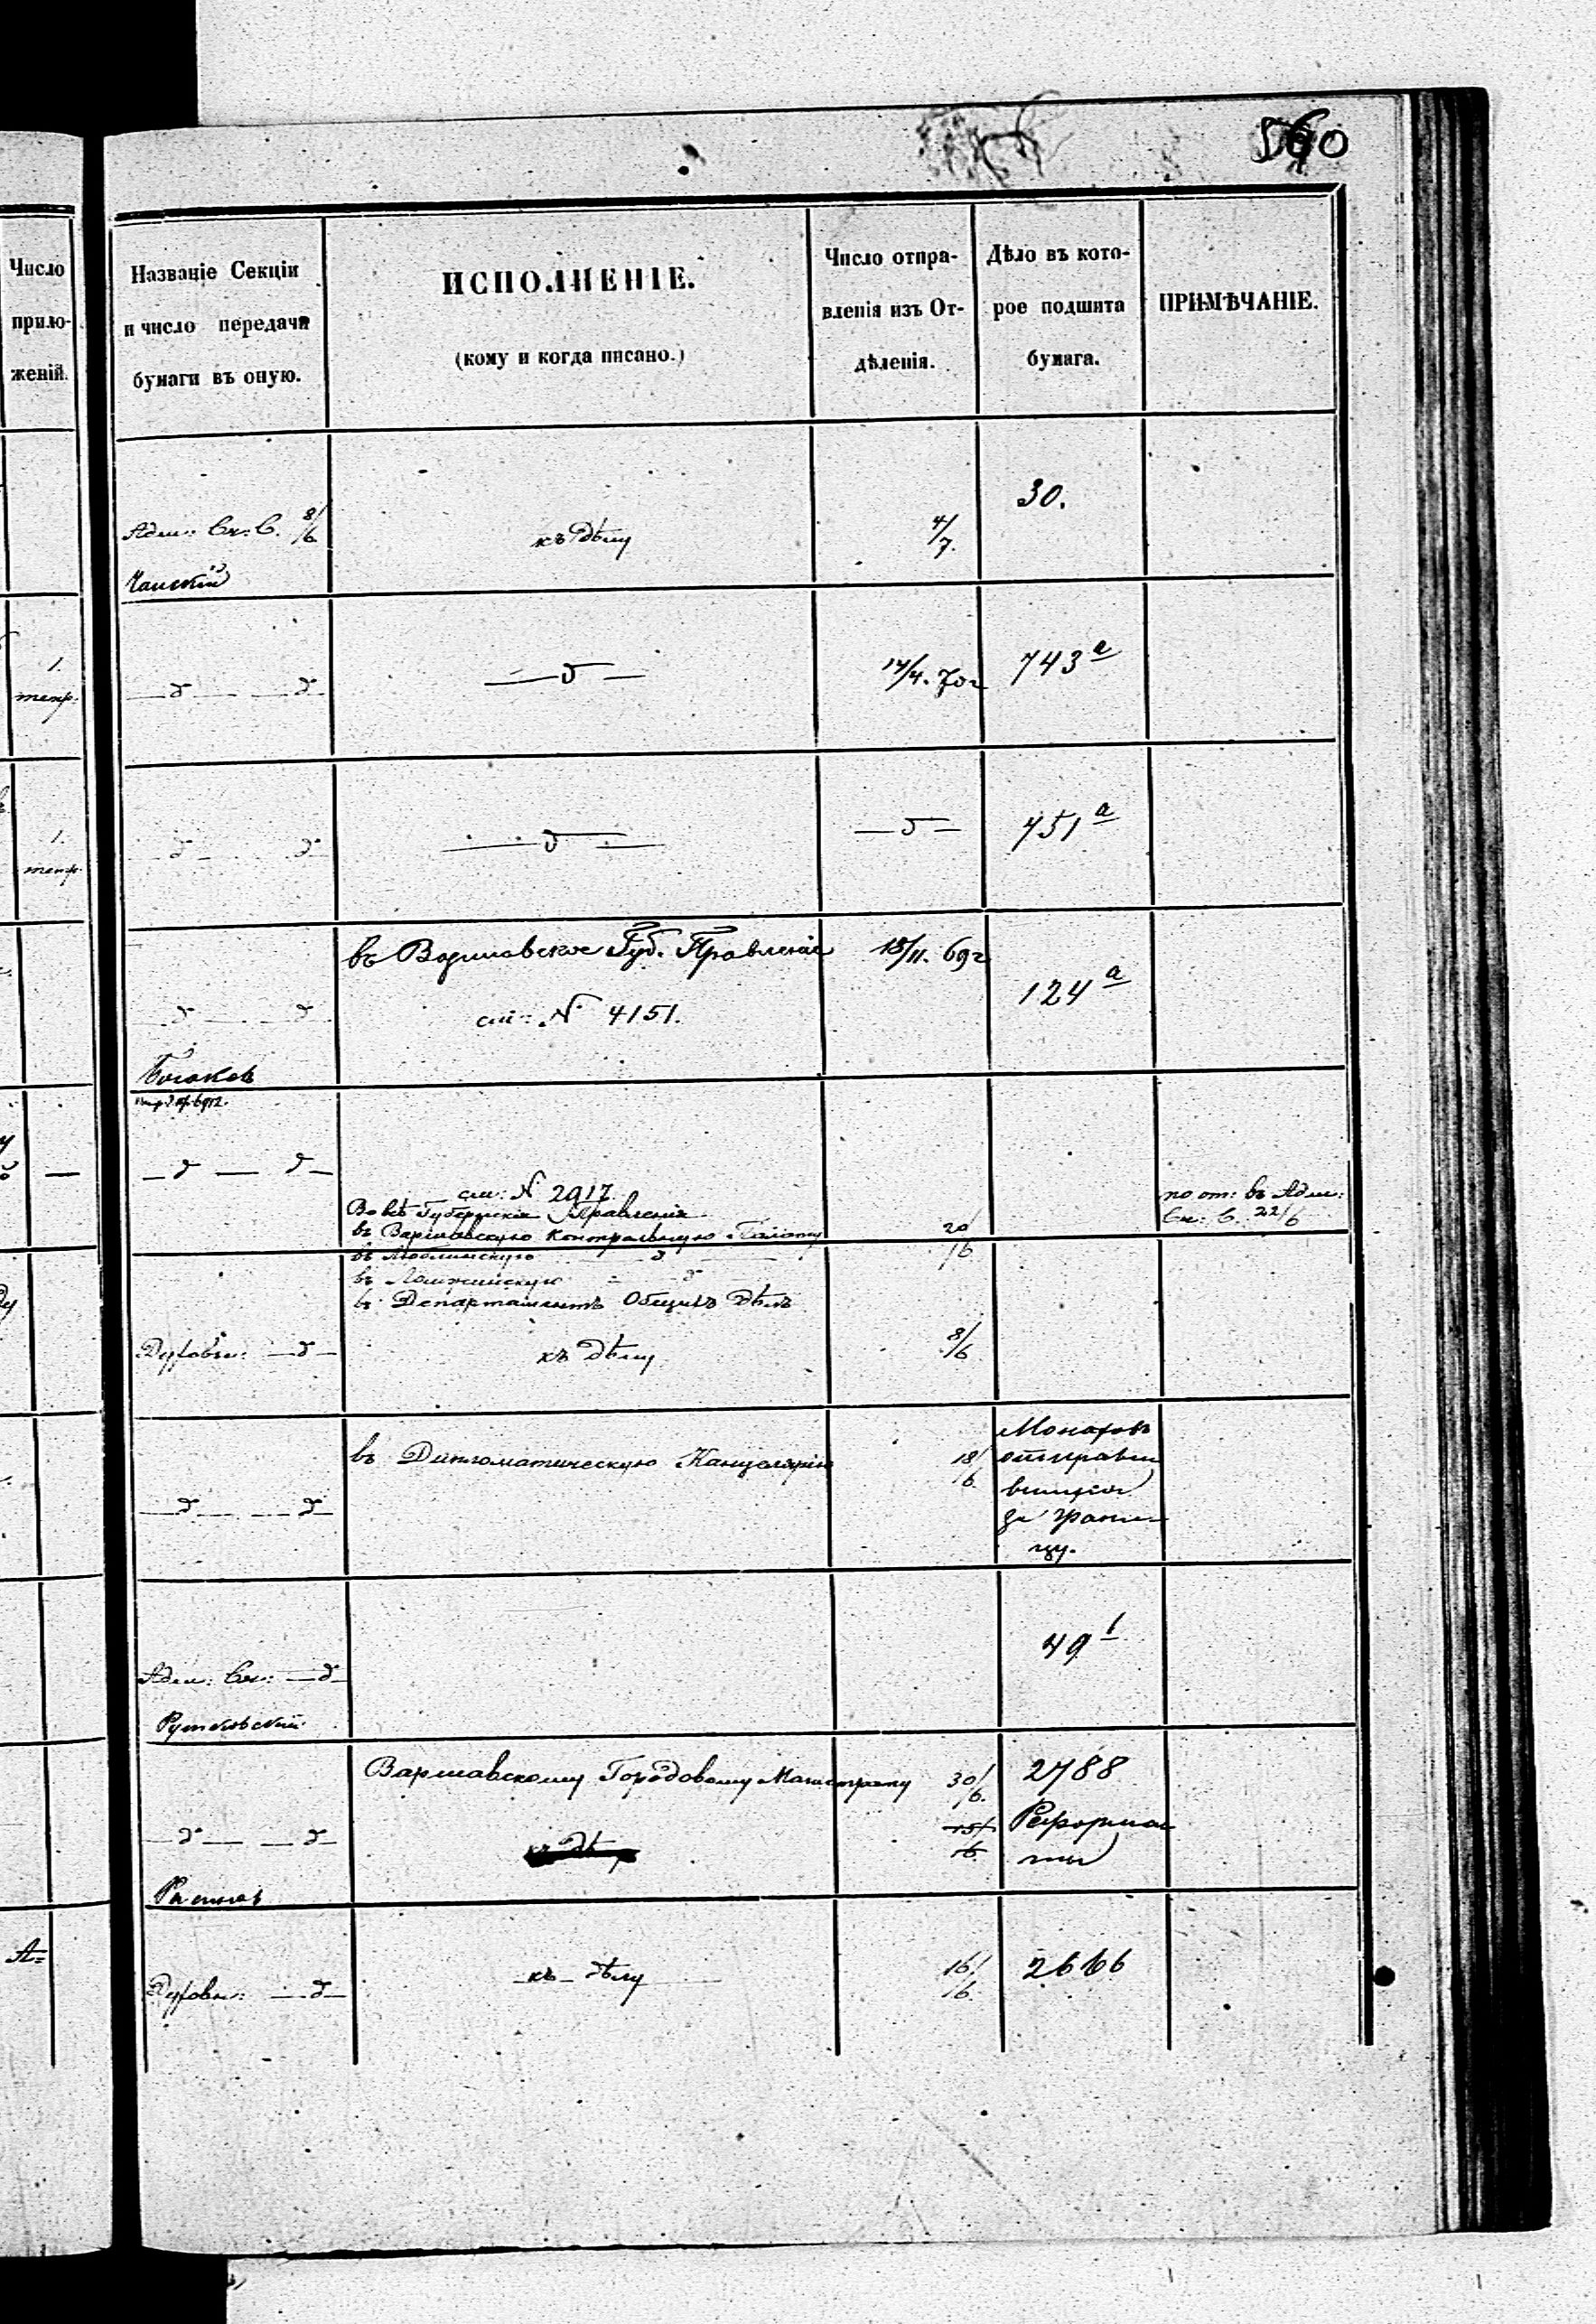 560
Число
прило-
женій.
Названіе Секціи
и число передачи
бумаги въ оную.
ИСПОЛНЕНІЕ.
(кому и когда писано.)
Число отпра-
вленія изъ От-
дѣленія.
Дѣло въ кото-
рое подшита
бумага.
ПРИМѢЧАНІЕ.
Адм: Ск: С. 8/6
къ дѣлу
4/7.
30.
1.
тетр.
— д — — д —
— д —
14/4. 70 г
743 а
1.
тетр.
— д — — д —
— д —
— д —
751 а
— д — — д —
въ Варшавское Губ. Правленіе
см: № 4151.
18/11. 69 г
124 а
— д — д —
см: № 2917.
Во всѣ Губернскія Правленія
въ Варшавскую Контрольную Палату
въ Люблинскую — д —
въ Ломжинскую — д —
въ Департаментъ Общихъ Дѣлъ
20/6
по от: въ Адм:
Ск: С. 22/6
Духовн: — д —
къ дѣлу
8/6
— д — — д —
въ Дипломатическую Канцелярію
18/6.
Монаховъ
отправи
вшихся
за грани-
цу.
Адм: Ск: — д —
Рутковскій
49 1
— д — — д —
Варшавскому Городовому Магистрату
30/6.
къ дѣ
15/6.
2788
Реформа
ты
Духовн: — д —
къ дѣлу
16/6.
2666